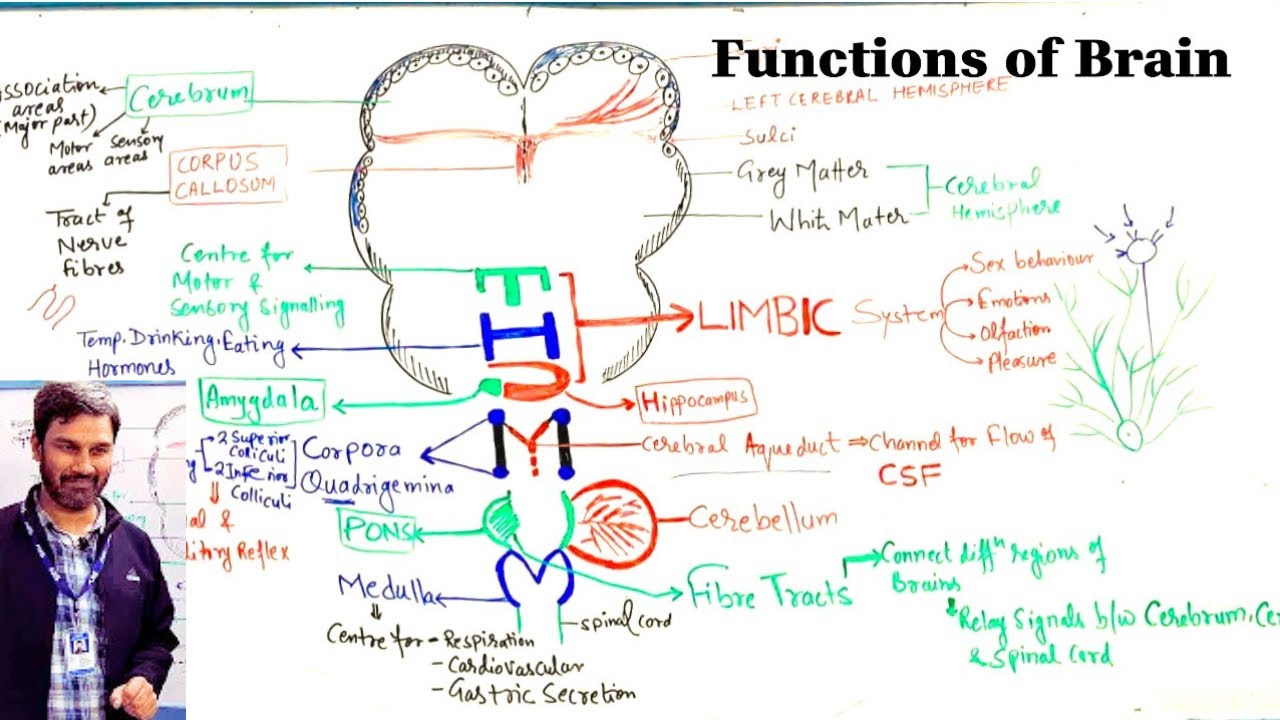 Functions of Brain
LEFT CEREBRAL HEMISPHERE
Sulci
Grey Matter
Whit Mater
Cerebral
Hemisphere
Cerebrum
ssociation
areas
(Major part)
Motor
areas
Sensory
areas
CORPUS
CALLOSUM
Tract of
Nerve
fibres
Centre for
Motor &
Sensory Signalling
T
H
Temp. Drinking, Eating
Hormones
LIMBIC System
Sex behaviour
Emotions
Olfaction
Pleasure
Amygdala
Hippocampus
2 Superior
Colliculi
2 Inferior
Colliculi
Corpora
Quadrigemina
al &
ditory Reflex
Cerebral Aqueduct ⇒ Channel for Flow of
CSF
PONS
Cerebellum
Medulla
Centre for - Respiration
- Cardiovascular
- Gastric Secretion
spinal cord
Fibre Tracts
Connect diffn regions of
Brains
Relay Signals b/w Cerebrum, Ce
& Spinal Cord